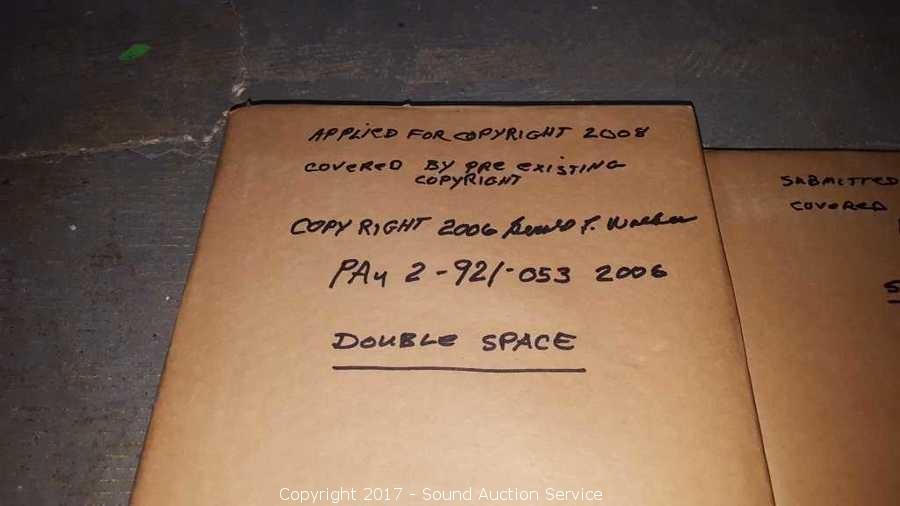 APPLIED FOR COPYRIGHT 2008
COVERED BY PRE EXISTING
COPYRIGHT
COPYRIGHT 2006
PAu 2-921-053 2006
DOUBLE SPACE
SUBMITTED
COVERED
Copyright 2017 - Sound Auction Service